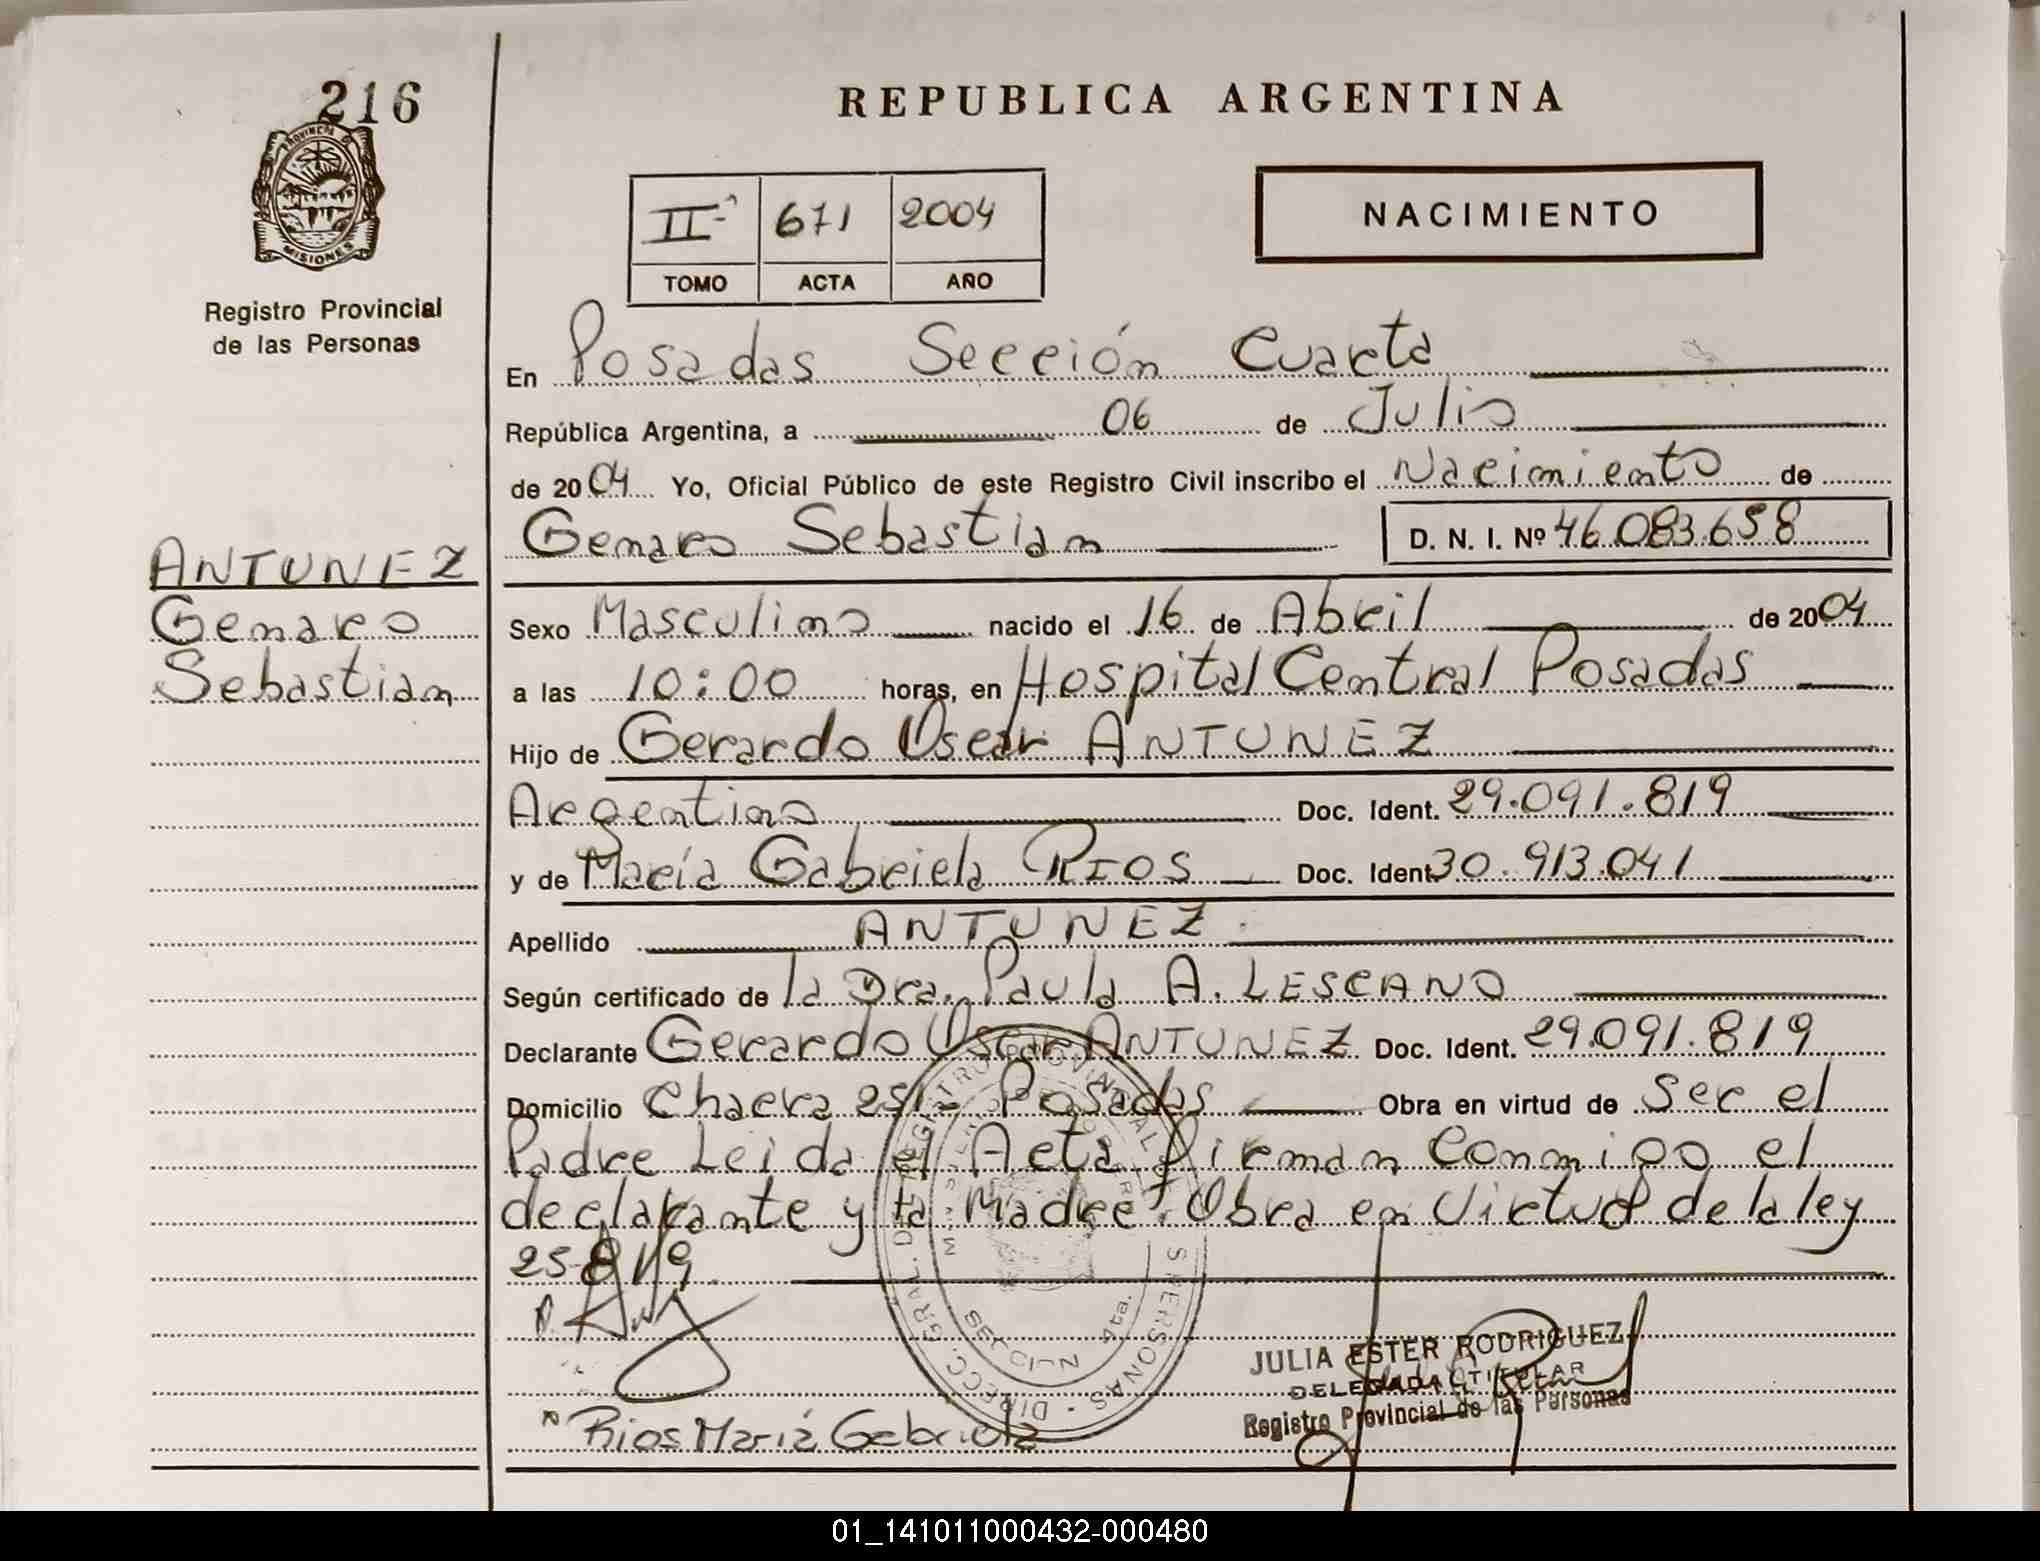 216
REPUBLICA ARGENTINA
PROVINCIA DE
MISIONES
Registro Provincial
de las Personas
II 671 2004
TOMO ACTA AÑO
NACIMIENTO
En Posadas Sección Cuarta
República Argentina, a 06 de Julio
de 2004 Yo, Oficial Público de este Registro Civil inscribo el Nacimiento de
Genaro Sebastian D. N. I. Nº 46.083.658
ANTUNEZ
Genaro
Sebastian
Sexo Masculino nacido el 16 de Abril de 2004
a las 10:00 horas, en Hospital Central Posadas
Hijo de Gerardo Oscar ANTUNEZ
Argentino Doc. Ident. 29.091.819
y de María Gabriela RIOS Doc. Ident. 30.913.041
Apellido ANTUNEZ
Según certificado de la Dra. Paula A. LESCANO
Declarante Gerardo Oscar ANTUNEZ Doc. Ident. 29.091.819
Domicilio Chacra 251- Posadas Obra en virtud de Ser el
Padre Leida el Acta firman Conmigo el
declarante y la Madre. Obra en Virtud de la ley
25819.
DIRECC. GRAL. DE REGISTRO PROVINCIAL PERSONAS
SECCION 4ta.
JULIA ESTER RODRIGUEZ
DELEGADA TITULAR
Registro Provincial de las Personas
Rios María Gabriela
01_141011000432-000480